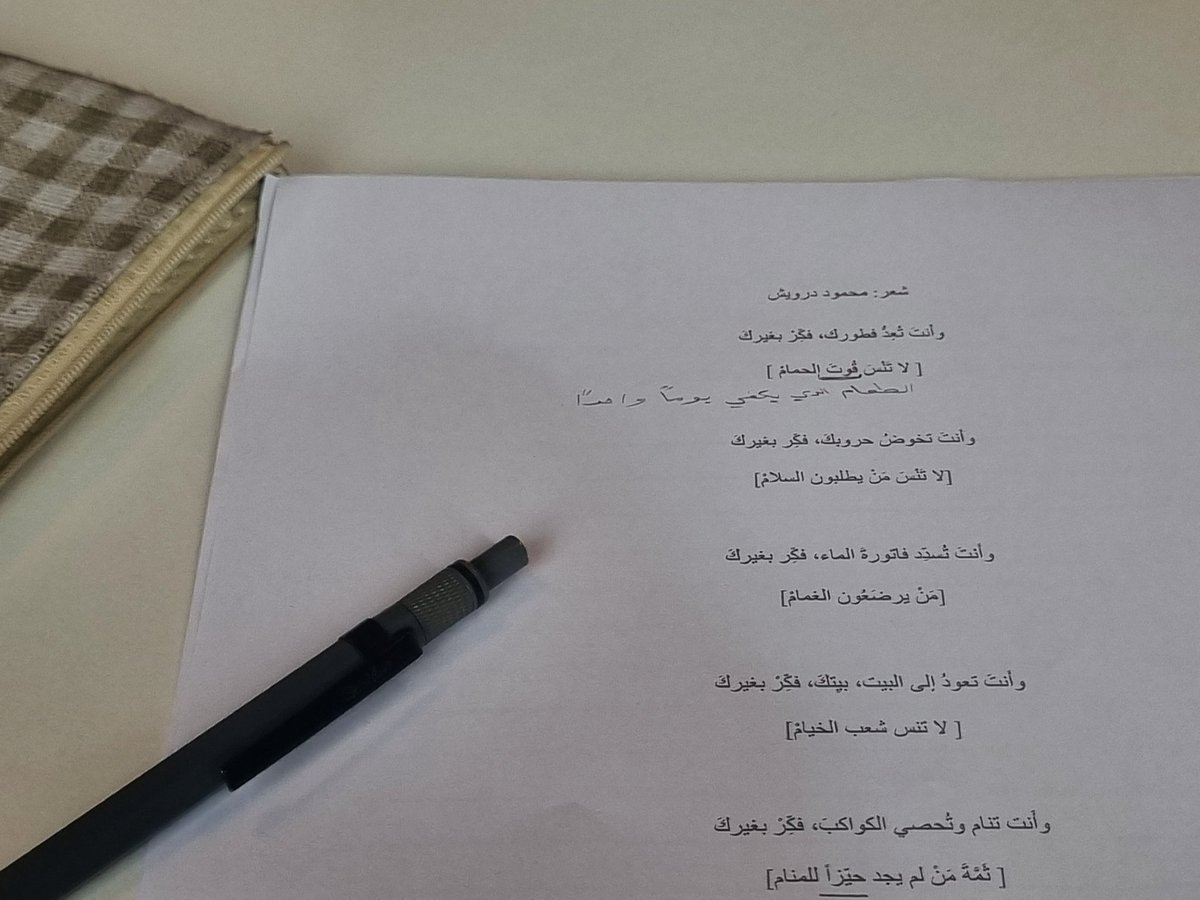 شعر: محمود درويش
وأنتَ تُعِدُّ فطورك، فكِّرْ بغيركَ
[ لا تَنْسَ قُوتَ الحمامْ ]
الطعام الذي يكفي يوماً واحداً
وأنتَ تخوضُ حروبكَ، فكِّر بغيركَ
[لا تَنْسَ مَنْ يطلبون السلامْ]
وأنتَ تُسدِّد فاتورةَ الماء، فكِّر بغيركَ
[مَنْ يرضَعُون الغمامْ]
وأنتَ تعودُ إلى البيت، بيتكَ، فكِّرْ بغيركَ
[ لا تنس شعب الخيامْ]
وأَنت تنام وتُحصي الكواكبَ، فكِّرْ بغيركَ
[ ثَمَّةَ مَنْ لم يجد حيّزاً للمنام]